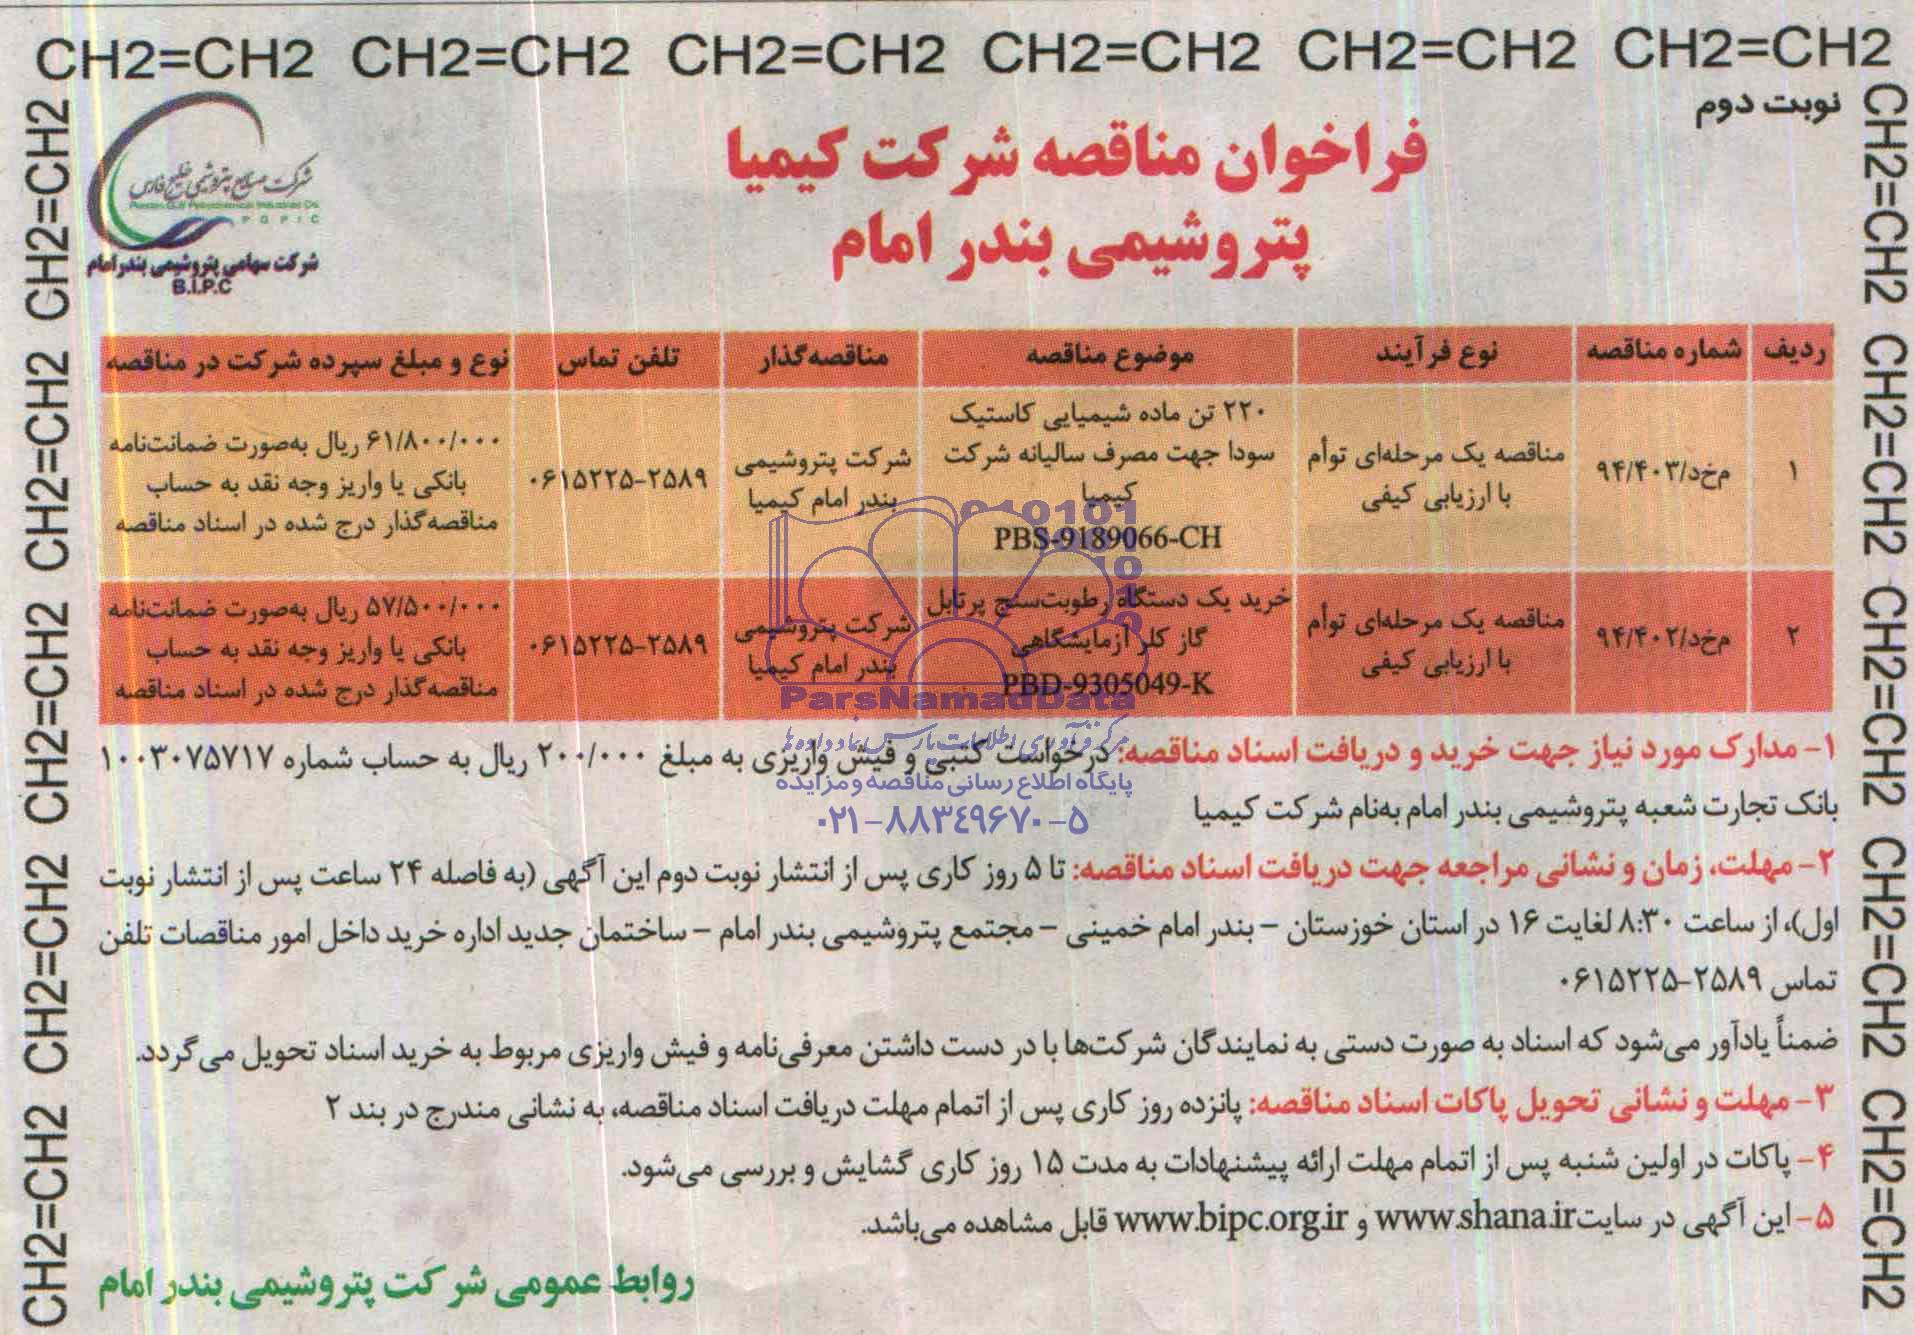 CH2=CH2 CH2=CH2 CH2=CH2 CH2=CH2 CH2=CH2 CH2=CH2
نوبت دوم
فراخوان مناقصه شرکت کیمیا
پتروشیمی بندر امام
شرکت صنایع پتروشیمی خلیج فارس
Persian Gulf Petrochemical Industries Co.
PGPIC
شرکت سهامی پتروشیمی بندر امام
B.I.P.C
CH2=CH2 CH2=CH2 CH2=CH2 CH2=CH2 CH2=CH2
CH2=CH2 CH2=CH2 CH2=CH2 CH2=CH2 CH2=CH2
ردیف شماره مناقصه نوع فرآیند موضوع مناقصه مناقصه‌گذار تلفن تماس نوع و مبلغ سپرده شرکت در مناقصه
۱
م‌خ‌د/۹۴/۴۰۳
مناقصه یک مرحله‌ای توأم
با ارزیابی کیفی
۲۲۰ تن ماده شیمیایی کاستیک
سودا جهت مصرف سالیانه شرکت
کیمیا
PBS-9189066-CH
شرکت پتروشیمی
بندر امام کیمیا
۰۶۱۵۲۲۵-۲۵۸۹
۶۱/۸۰۰/۰۰۰ ریال به‌صورت ضمانت‌نامه
بانکی یا واریز وجه نقد به حساب
مناقصه‌گذار درج شده در اسناد مناقصه
۲
م‌خ‌د/۹۴/۴۰۲
مناقصه یک مرحله‌ای توأم
با ارزیابی کیفی
خرید یک دستگاه رطوبت‌سنج پرتابل
گاز کلر آزمایشگاهی
PBD-9305049-K
شرکت پتروشیمی
بندر امام کیمیا
۰۶۱۵۲۲۵-۲۵۸۹
۵۷/۵۰۰/۰۰۰ ریال به‌صورت ضمانت‌نامه
بانکی یا واریز وجه نقد به حساب
مناقصه‌گذار درج شده در اسناد مناقصه
ParsNamadData
مرکز فرآوری اطلاعات پارس نماد داده‌ها
پایگاه اطلاع رسانی مناقصه و مزایده
۰۲۱-۸۸۳۴۹۶۷۰-۵
۱- مدارک مورد نیاز جهت خرید و دریافت اسناد مناقصه: درخواست کتبی و فیش واریزی به مبلغ ۲۰۰/۰۰۰ ریال به حساب شماره ۱۰۰۳۰۷۵۷۱۷
بانک تجارت شعبه پتروشیمی بندر امام به‌نام شرکت کیمیا
۲- مهلت، زمان و نشانی مراجعه جهت دریافت اسناد مناقصه: تا ۵ روز کاری پس از انتشار نوبت دوم این آگهی (به فاصله ۲۴ ساعت پس از انتشار نوبت
اول)، از ساعت ۸:۳۰ لغایت ۱۶ در استان خوزستان – بندر امام خمینی – مجتمع پتروشیمی بندر امام – ساختمان جدید اداره خرید داخل امور مناقصات تلفن
تماس ۰۶۱۵۲۲۵-۲۵۸۹
ضمناً یادآور می‌شود که اسناد به صورت دستی به نمایندگان شرکت‌ها با در دست داشتن معرفی‌نامه و فیش واریزی مربوط به خرید اسناد تحویل می‌گردد.
۳- مهلت و نشانی تحویل پاکات اسناد مناقصه: پانزده روز کاری پس از اتمام مهلت دریافت اسناد مناقصه، به نشانی مندرج در بند ۲
۴- پاکات در اولین شنبه پس از اتمام مهلت ارائه پیشنهادات به مدت ۱۵ روز کاری گشایش و بررسی می‌شود.
۵- این آگهی در سایت www.shana.ir و www.bipc.org.ir قابل مشاهده می‌باشد.
روابط عمومی شرکت پتروشیمی بندر امام